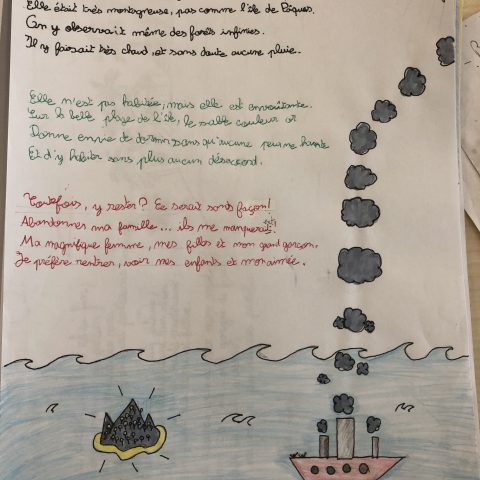 Elle était très montagneuse, pas comme l'île de Pâques.
On y observait même des forêts infinies.
Il y faisait très chaud, et sans doute aucune pluie.
Elle n'est pas habitée, mais elle est envoûtante.
Sur la belle plage de l'île, le sable couleur or
Donne envie de dormir sans qu'aucune peur me hante
Et d'y habiter sans plus aucun désaccord.
Toutefois, y rester? Ce serait sans façon!
Abandonner ma famille... ils me manquerait
Ma magnifique femme, mes filles et mon grand garçon.
Je préfère rentrer, voir mes enfants et mon aimée.